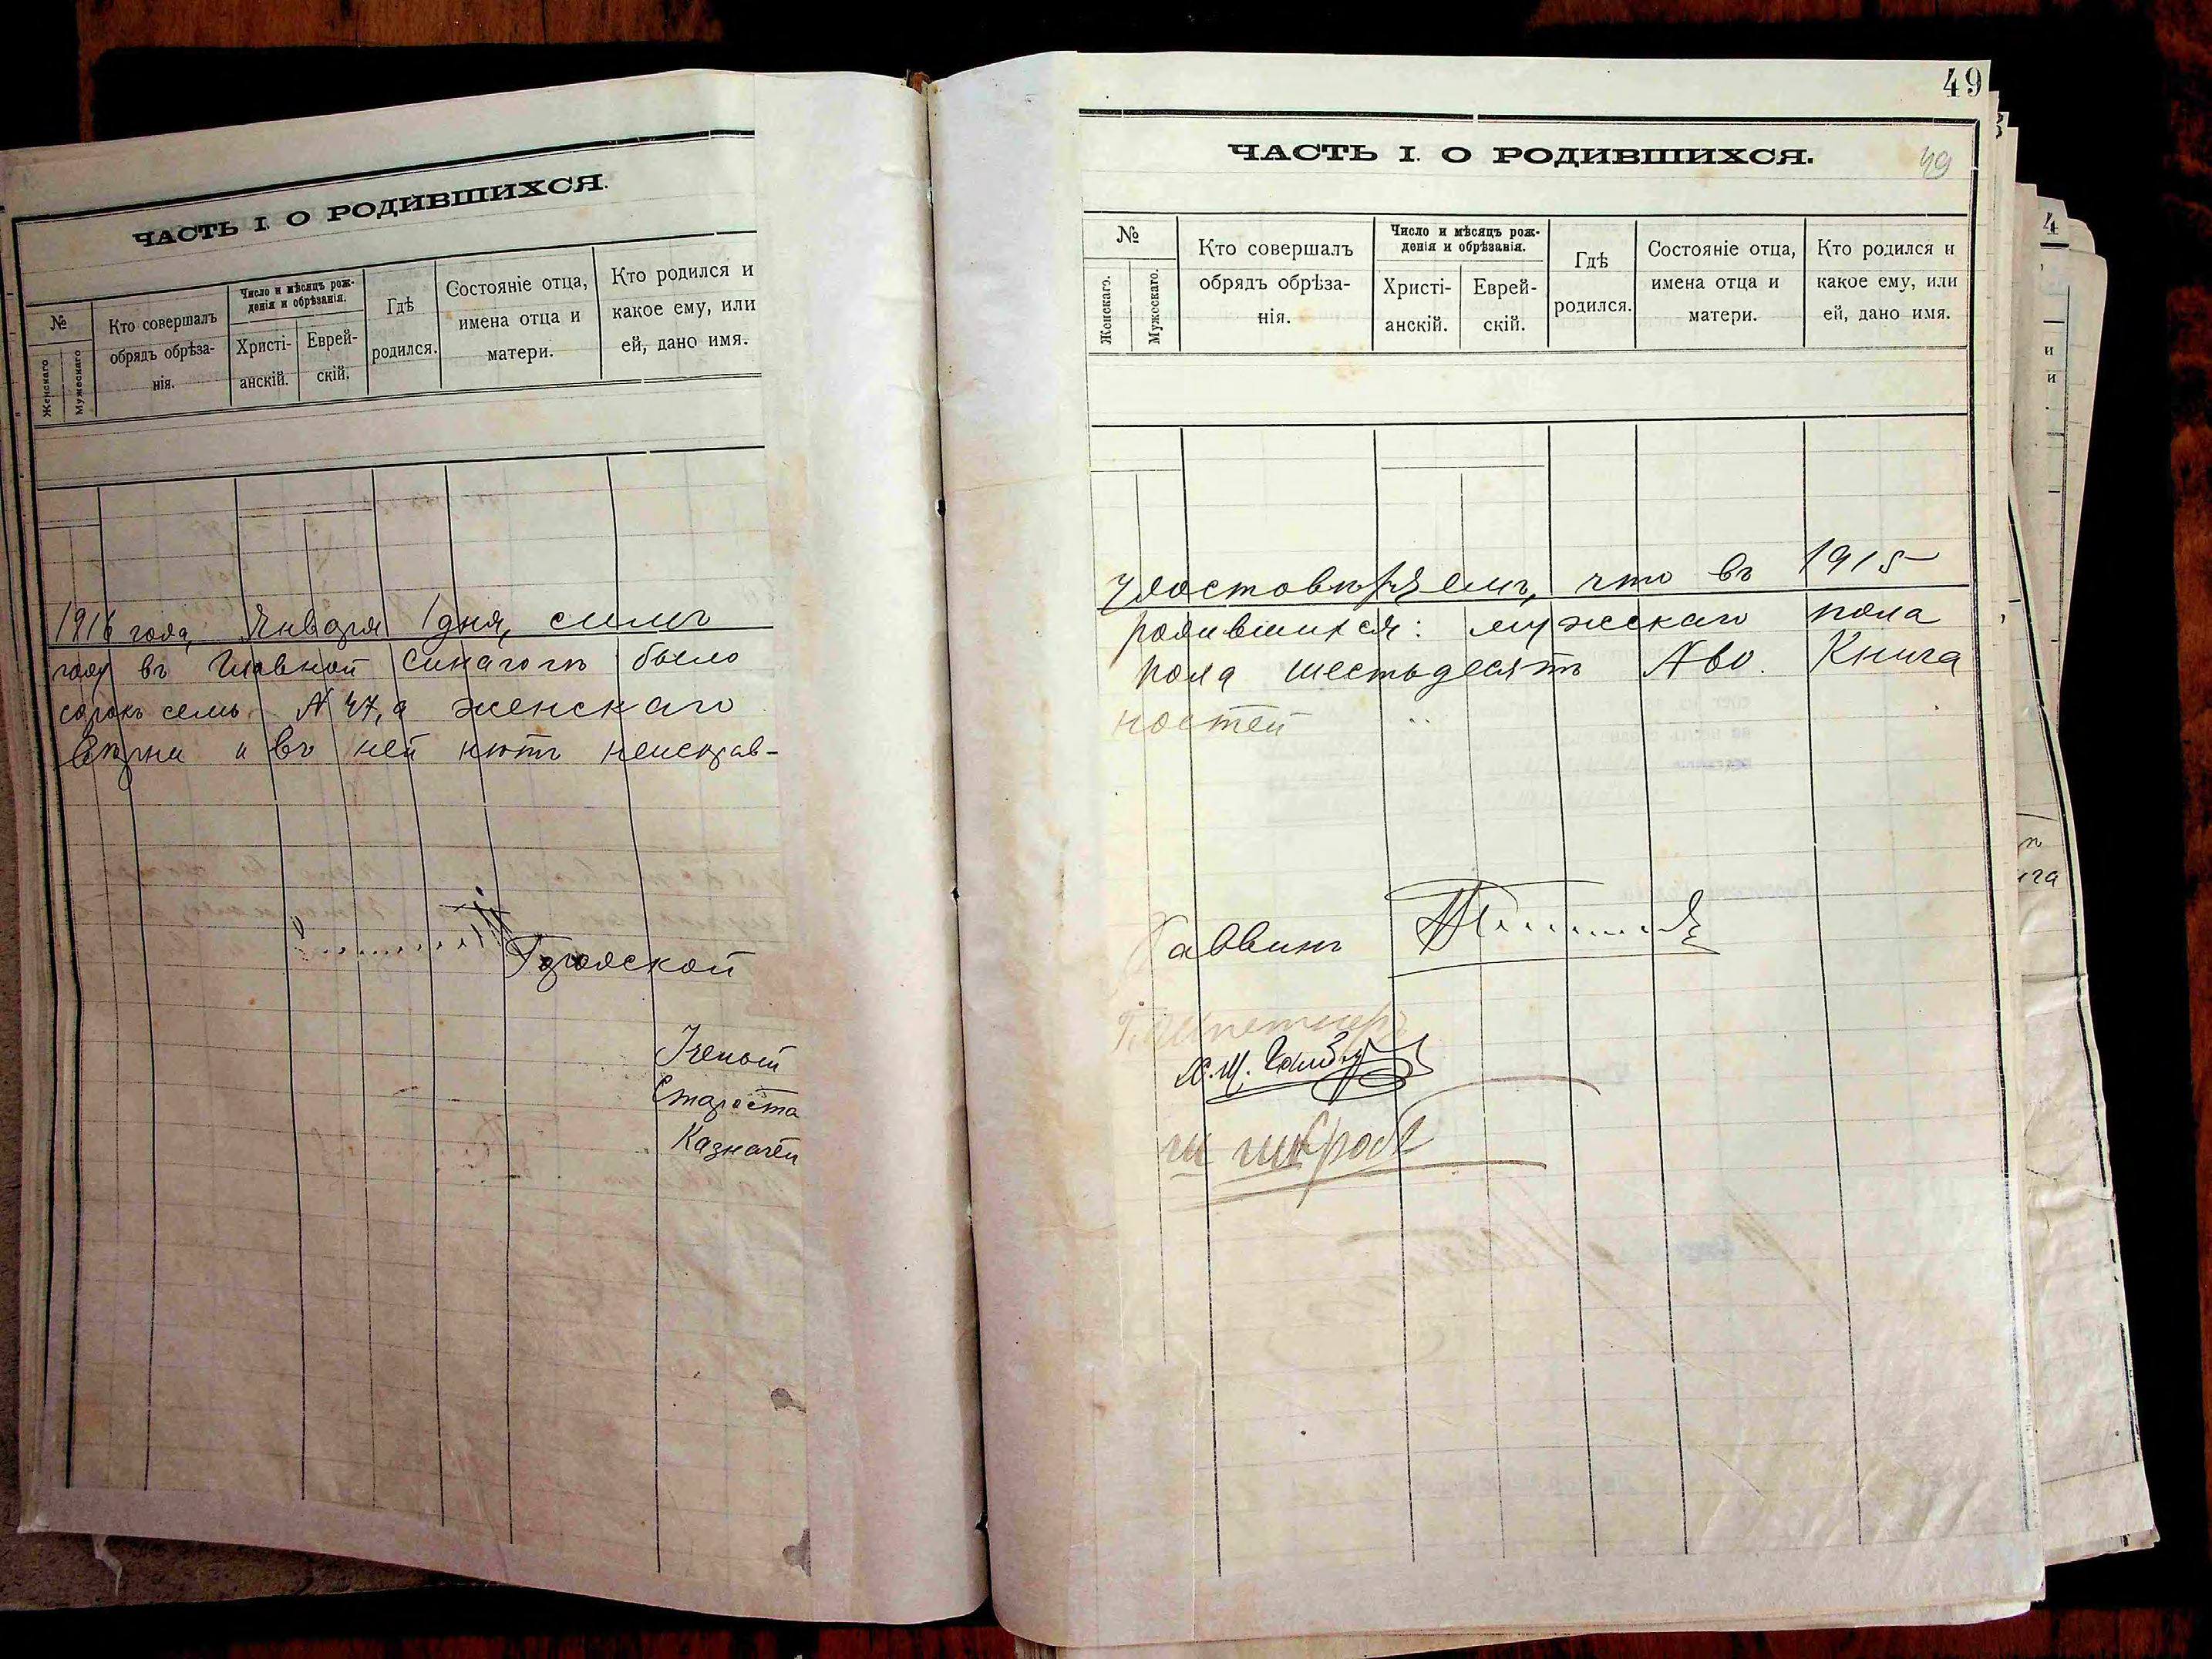 ЧАСТЬ I. О РОДИВШИХСЯ.
№
Женскаго
Мужескаго
Кто совершалъ
обрядъ обрѣза-
нія.
Число и мѣсяцъ рож-
денія и обрѣзанія.
Христі-
анскій.
Еврей-
скій.
Гдѣ
родился.
Состояніе отца,
имена отца и
матери.
Кто родился и
какое ему, или
ей, дано имя.
1916 года, Января 1 дня, симъ
году въ Главной Синагогѣ было
сорокъ семь № 47, а женскаго
вѣрна и въ ней нѣтъ неисправ-
Городской
Ученый
Староста
Казначей
49
ЧАСТЬ I. О РОДИВШИХСЯ.
49
№
Женскаго.
Мужескаго.
Кто совершалъ
обрядъ обрѣза-
нія.
Число и мѣсяцъ рож-
денія и обрѣзанія.
Христі-
анскій.
Еврей-
скій.
Гдѣ
родился.
Состояніе отца,
имена отца и
матери.
Кто родился и
какое ему, или
ей, дано имя.
удостовѣряемъ, что въ 1915
родившихся: мужскаго пола
пола шестьдесятъ № 60. Книга
ностей
Раввинъ
Х. Ш.
4